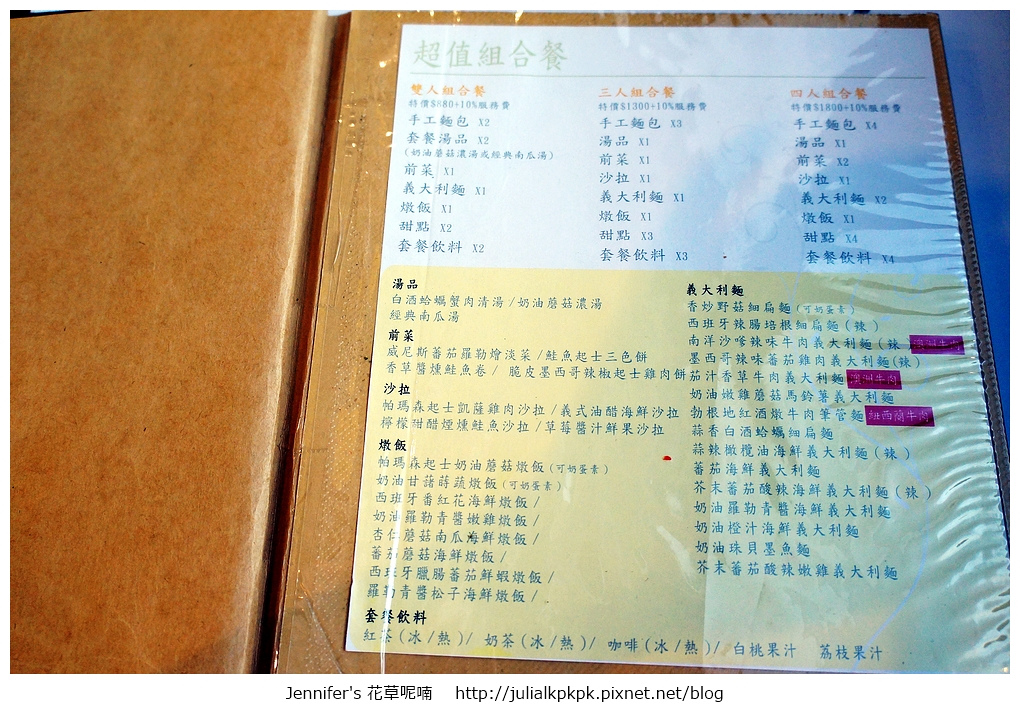 超值組合餐
雙人組合餐
特價$880+10%服務費
手工麵包 X2
套餐湯品 X2
(奶油蘑菇濃湯或經典南瓜湯)
前菜 X1
義大利麵 X1
燉飯 X1
甜點 X2
套餐飲料 X2
三人組合餐
特價$1300+10%服務費
手工麵包 X3
湯品 X1
前菜 X1
沙拉 X1
義大利麵 X1
燉飯 X1
甜點 X3
套餐飲料 X3
四人組合餐
特價$1800+10%服務費
手工麵包 X4
湯品 X1
前菜 X2
沙拉 X1
義大利麵 X2
燉飯 X1
甜點 X4
套餐飲料 X4
湯品
白酒蛤蠣蟹肉清湯/奶油蘑菇濃湯
經典南瓜湯
前菜
威尼斯蕃茄羅勒燴淡菜/鮭魚起士三色餅
香草醬燻鮭魚卷/ 脆皮墨西哥辣椒起士雞肉餅
沙拉
帕瑪森起士凱薩雞肉沙拉/義式油醋海鮮沙拉
檸檬甜醋煙燻鮭魚沙拉/草莓醬汁鮮果沙拉
燉飯
帕瑪森起士奶油蘑菇燉飯(可奶蛋素)
奶油甘藷蒔蔬燉飯(可奶蛋素)
西班牙番紅花海鮮燉飯/
奶油羅勒青醬嫩雞燉飯/
杏仁蘑菇南瓜海鮮燉飯/
蕃茄蘑菇海鮮燉飯/
西班牙臘腸蕃茄鮮蝦燉飯/
羅勒青醬松子海鮮燉飯/
套餐飲料
紅茶(冰/熱)/ 奶茶(冰/熱)/ 咖啡(冰/熱)/ 白桃果汁 荔枝果汁
義大利麵
香炒野菇細扁麵(可奶蛋素)
西班牙辣腸培根細扁麵(辣)
南洋沙嗲辣味牛肉義大利麵(辣) 澳洲牛肉
墨西哥辣味蕃茄雞肉義大利麵(辣)
茄汁香草牛肉義大利麵 澳洲牛肉
奶油嫩雞蘑菇馬鈴薯義大利麵
勃根地紅酒燉牛肉筆管麵 紐西蘭牛肉
蒜香白酒蛤蠣細扁麵
蒜辣橄欖油海鮮義大利麵(辣)
蕃茄海鮮義大利麵
芥末蕃茄酸辣海鮮義大利麵(辣)
奶油羅勒青醬海鮮義大利麵
奶油橙汁海鮮義大利麵
奶油珠貝墨魚麵
芥末蕃茄酸辣嫩雞義大利麵
Jennifer's 花草呢喃 http://julialkpkpk.pixnet.net/blog